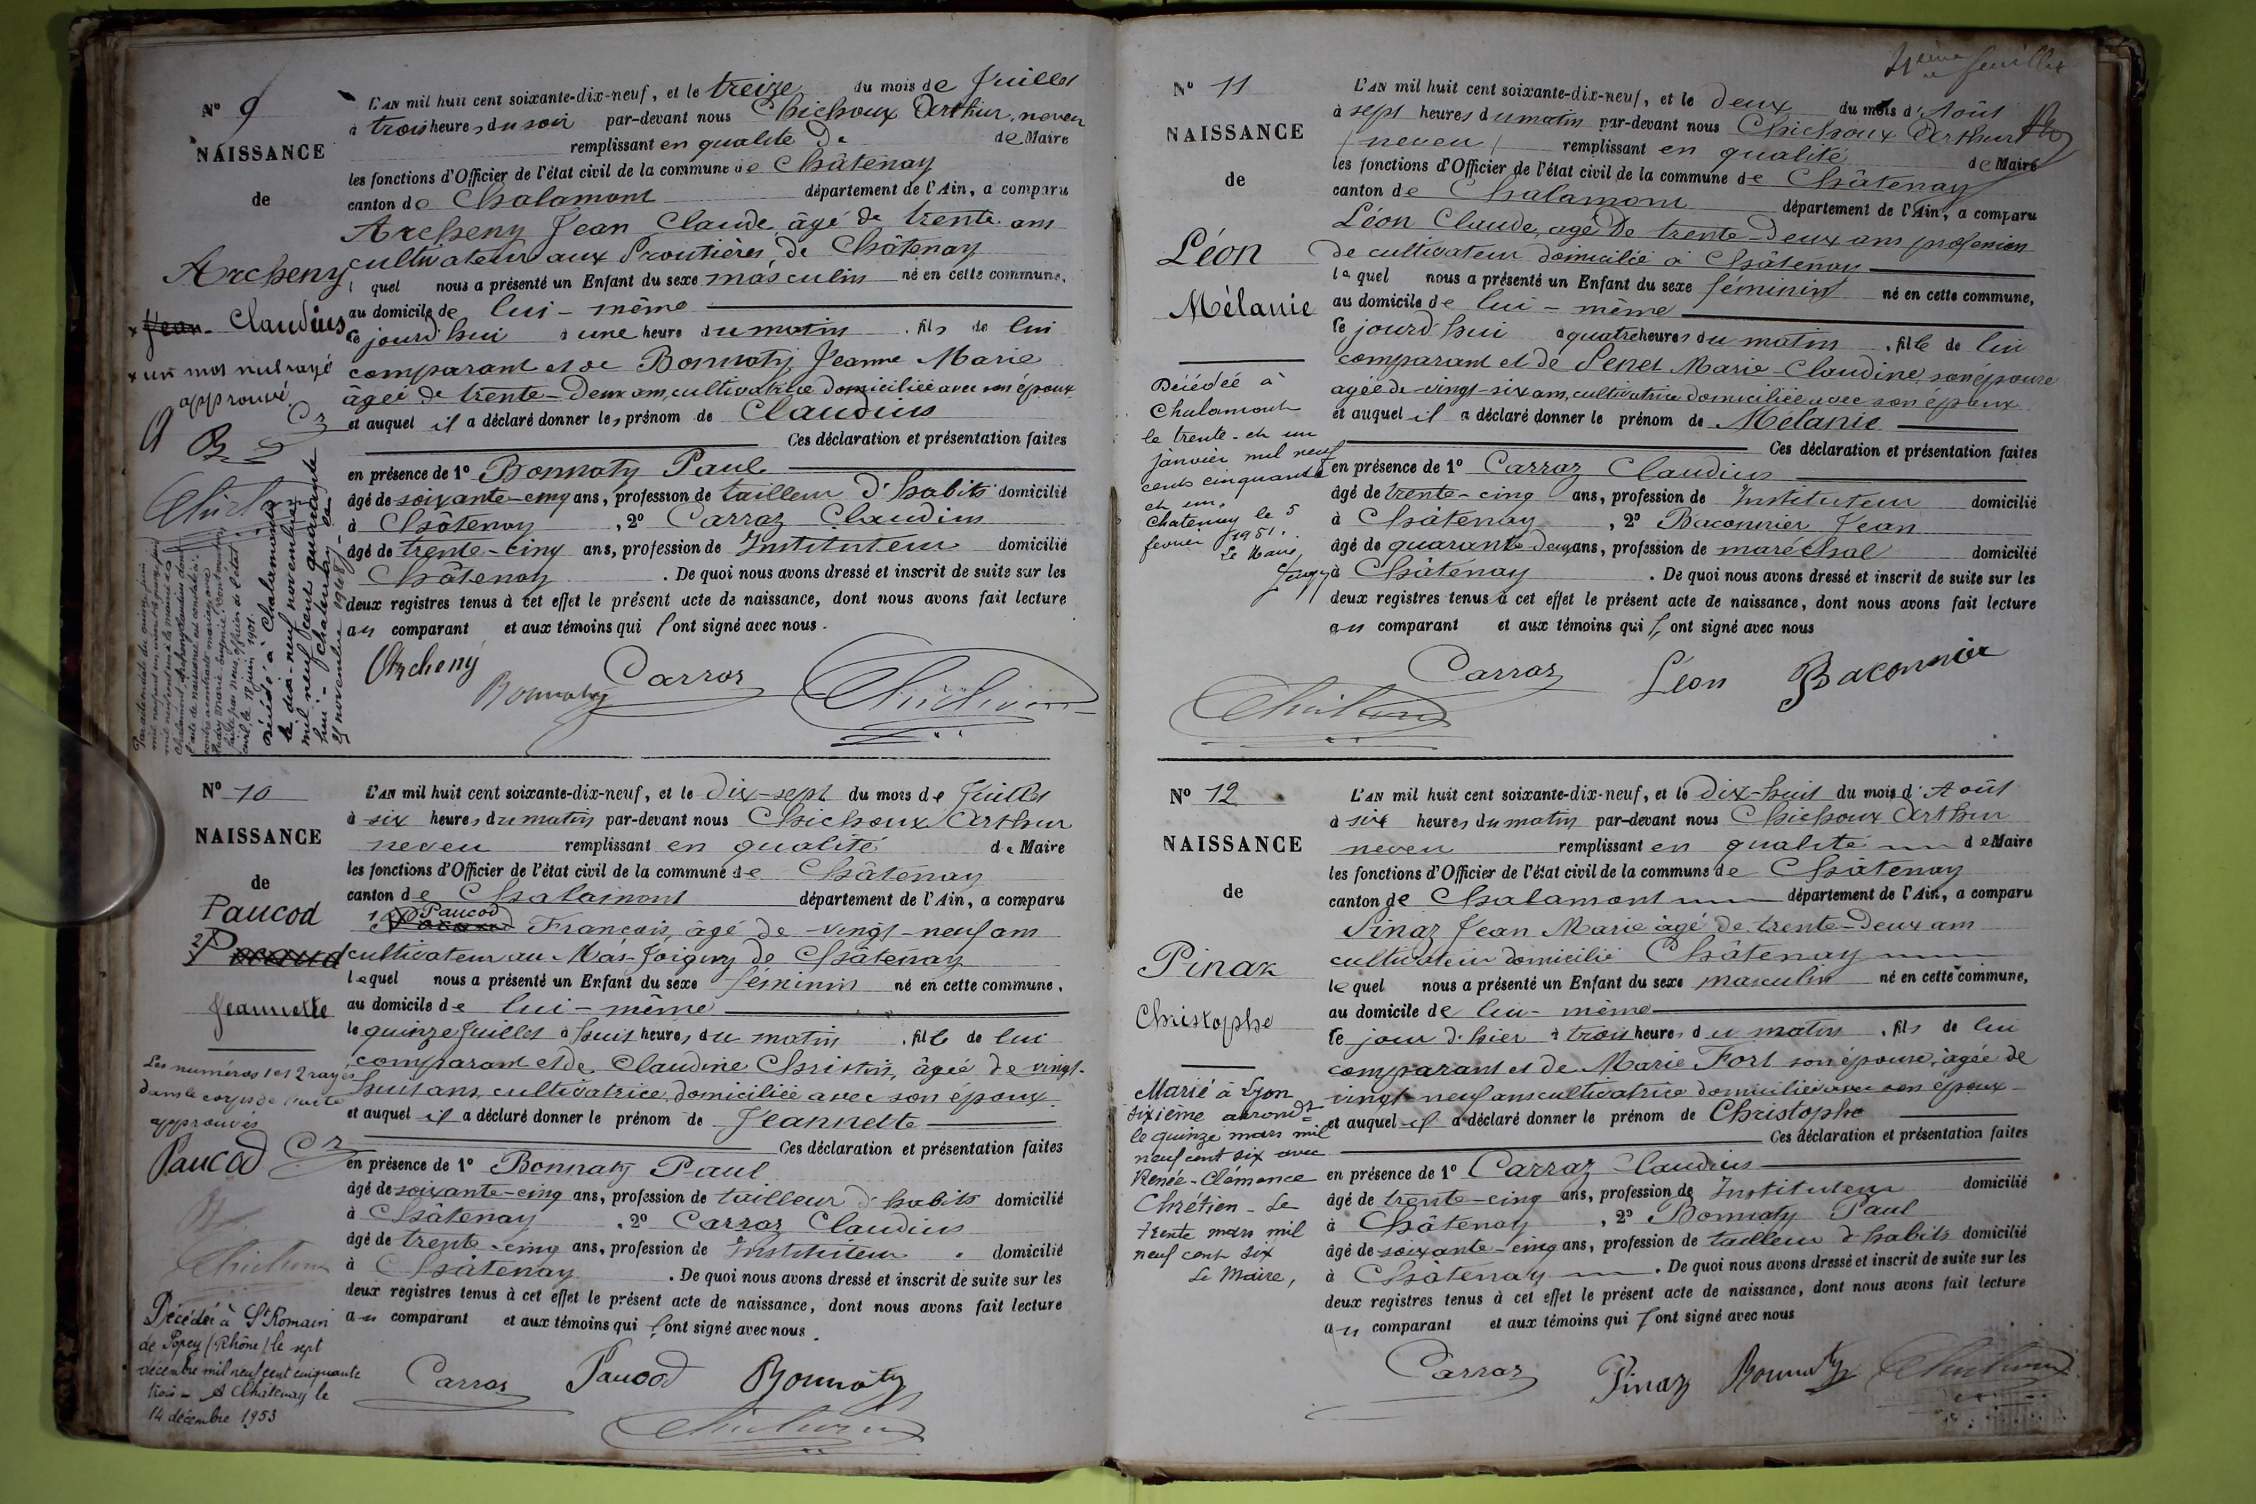 Nº 9
NAISSANCE
de
Archeny
x Jean - Claudius
x un mot nul rayé
approuvé
Cz
L'AN mil huit cent soixante-dix-neuf, et le treize du mois de Juillet
à trois heures du soir par-devant nous Chichoux Arthur, neveu
remplissant en qualité de de Maire
les fonctions d'Officier de l'état civil de la commune de Châtenay
canton de Chalamont département de l'Ain, a comparu
Archeny Jean Claude, âgé de trente ans
cultivateur aux Proutières, de Châtenay
l quel nous a présenté un Enfant du sexe masculin né en cette commune,
au domicile de lui-même
ce jourd'hui à une heure du matin, fils de lui
comparant et de Bonnaty Jeanne Marie
âgée de trente-deux ans, cultivatrice domiciliée avec son époux
et auquel il a déclaré donner les prénom de Claudius
Ces déclaration et présentation faites
en présence de 1º Bonnaty Paul
âgé de soixante-cinq ans, profession de tailleur d'habits domicilié
à Châtenay, 2º Carraz Claudius
âgé de trente-cinq ans, profession de Instituteur domicilié
Châtenay. De quoi nous avons dressé et inscrit de suite sur les
deux registres tenus à cet effet le présent acte de naissance, dont nous avons fait lecture
au comparant et aux témoins qui ont signé avec nous.
Archeny
Bonnaty
Carraz
Chichoux
Décédé à Chalamont
le dix-neuf novembre
mil neuf cent quarante
huit - Chatenay le
Nº 10
NAISSANCE
de
Paucod
Jeannette
Les numéros 1 et 2 rayés
dans le corps de l'acte
approuvés
Paucod Cz
Chichoux
Décédée à St Romain
de Popey (Rhône) le sept
décembre mil neuf cent cinquante
trois - A Châtenay le
14 décembre 1953
L'AN mil huit cent soixante-dix-neuf, et le dix-sept du mois de Juillet
à six heures du matin par-devant nous Chichoux Arthur
neveu remplissant en qualité de Maire
les fonctions d'Officier de l'état civil de la commune de Châtenay
canton de Chalamont département de l'Ain, a comparu
1 Paucod François, âgé de vingt-neuf ans
cultivateur au Mas-Joigny de Châtenay
lequel nous a présenté un Enfant du sexe féminin né en cette commune,
au domicile de lui-même
le quinze Juillet à huit heures du matin, fille de lui
comparant et de Claudine Christin, âgée de vingt-
huit ans, cultivatrice, domiciliée avec son époux
et auquel il a déclaré donner le prénom de Jeannette
Ces déclaration et présentation faites
en présence de 1º Bonnaty Paul
âgé de soixante-cinq ans, profession de tailleur d'habits domicilié
à Châtenay, 2º Carraz Claudius
âgé de trente-cinq ans, profession de Instituteur domicilié
à Châtenay. De quoi nous avons dressé et inscrit de suite sur les
deux registres tenus à cet effet le présent acte de naissance, dont nous avons fait lecture
au comparant et aux témoins qui ont signé avec nous.
Carraz Paucod Bonnaty
Chichoux
feuillet
Nº 11
NAISSANCE
de
Léon
Mélanie
Décédée à
Chalamont
le trente-et un
janvier mil neuf
cent cinquante
et un.
Chatenay le 5
fevrier 1951.
Le Maire,
L'AN mil huit cent soixante-dix-neuf, et le deux du mois d'Août
à sept heures du matin par-devant nous Chichoux Arthur
neveu remplissant en qualité de Maire
les fonctions d'Officier de l'état civil de la commune de Châtenay
canton de Chalamont département de l'Ain, a comparu
Léon Claude, agé de trente-deux ans profession
de cultivateur domicilié à Châtenay
lequel nous a présenté un Enfant du sexe féminin né en cette commune,
au domicile de lui-même
ce jourd'hui à quatre heures du matin, fille de lui
comparant et de Penet Marie-Claudine, son épouse
agée de vingt-six ans, cultivatrice domiciliée avec son époux
et auquel il a déclaré donner le prénom de Mélanie
Ces déclaration et présentation faites
en présence de 1º Carraz Claudius
âgé de trente-cinq ans, profession de Instituteur domicilié
à Châtenay, 2º Baconnier Jean
âgé de quarante-deux ans, profession de maréchal domicilié
à Châtenay. De quoi nous avons dressé et inscrit de suite sur les
deux registres tenus à cet effet le présent acte de naissance, dont nous avons fait lecture
au comparant et aux témoins qui ont signé avec nous
Carraz Léon Baconnier
Chichoux
Nº 12
NAISSANCE
de
Pinaz
Christophe
Marié à Lyon
sixième arrondt
le quinze mars mil
neuf cent six avec
Renée-Clémence
Chrétien - Le
trente mars mil
neuf cent six
Le Maire,
L'AN mil huit cent soixante-dix-neuf, et le dix-huit du mois d'Août
à six heures du matin par-devant nous Chichoux Arthur
neveu remplissant en qualité de Maire
les fonctions d'Officier de l'état civil de la commune de Châtenay
canton de Chalamont département de l'Ain, a comparu
Pinaz Jean Marie âgé de trente-deux ans
cultivateur domicilié Châtenay
lequel nous a présenté un Enfant du sexe masculin né en cette commune,
au domicile de lui-même
le jour d'hier à trois heures du matin, fils de lui
comparant et de Marie Fort son épouse, âgée de
vingt-neuf ans cultivatrice domiciliée avec son époux
et auquel il a déclaré donner le prénom de Christophe
Ces déclaration et présentation faites
en présence de 1º Carraz Claudius
âgé de trente-cinq ans, profession de Instituteur domicilié
à Châtenay, 2º Bonnaty Paul
âgé de soixante-cinq ans, profession de tailleur d'habits domicilié
à Châtenay. De quoi nous avons dressé et inscrit de suite sur les
deux registres tenus à cet effet le présent acte de naissance, dont nous avons fait lecture
au comparant et aux témoins qui ont signé avec nous
Carraz Pinaz Bonnaty Chichoux